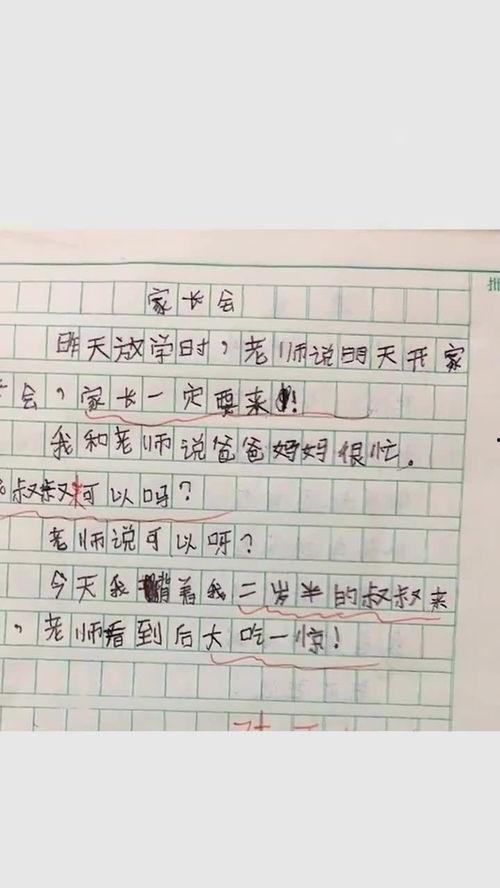 家长会
昨天放学时，老师说明天开家
会，家长一定要来！
我和老师说爸爸妈妈很忙。
叔叔来可以吗？
老师说可以呀？
今天我背着我二岁半的叔叔来
，老师看到后大吃一惊！